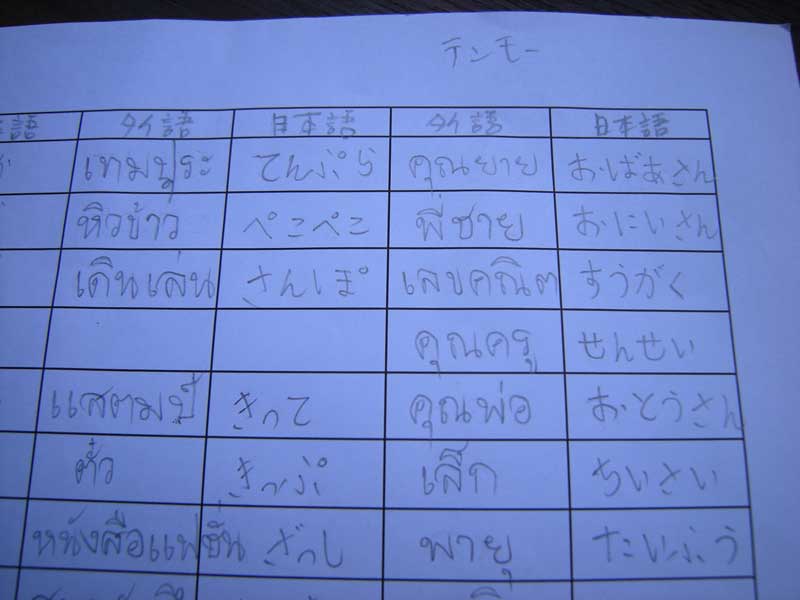 テンモー
語 タイ語 日本語 タイ語 日本語
เทมปุระ てんぷら คุณยาย おばあさん
หิวข้าว ぺこぺこ พี่ชาย おにいさん
เดินเล่น さんぽ เลขคณิต すうがく
คุณครู せんせい
แสตมป์ きって คุณพ่อ おとうさん
ตั๋ว きっぷ เล็ก ちいさい
หนังสือแฟชั่น ざっし พายุ たいふう